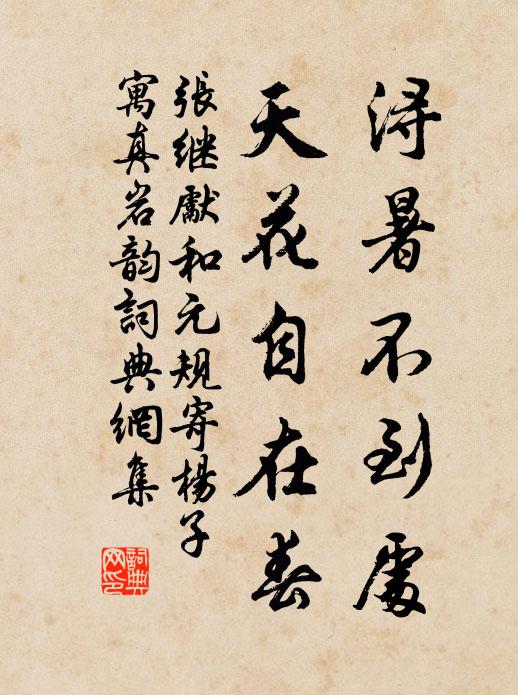 溽暑不到處
天花自在春
張继獻和元規寄楊子
寓真岩韵詞典網集
詞典网印